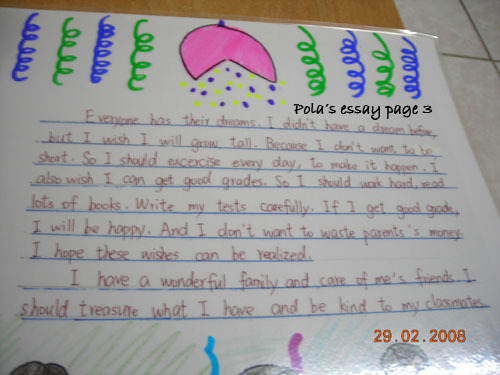 Pola's essay page 3
Everyone has their dreams. I didn't have a dream before,
but I wish I will grow tall. Because I don't want to be
short. So I should excercise every day, to make it happen. I
also wish I can get good grades. So I should work hard, read
lots of books. Write my tests carefully. If I get good grade,
I will be happy. And I don't want to waste parents's money.
I hope these wishes can be realized.
I have a wonderful family and care of me's friends. I
should treasure what I have and be kind to my classmates.
29.02.2008